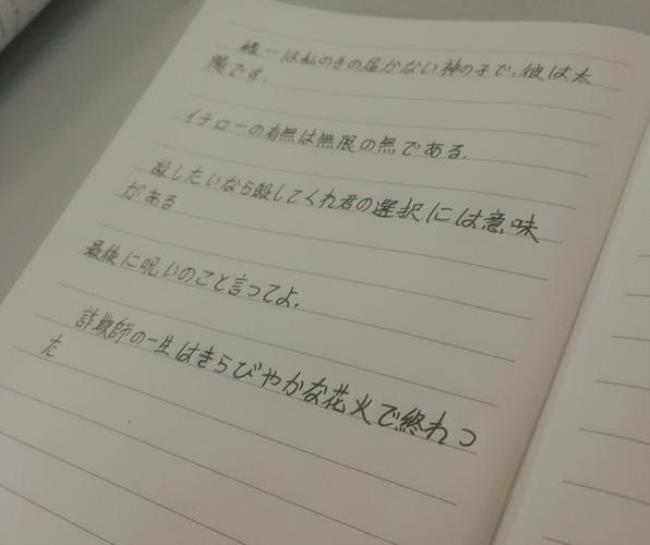 綾一は私のきの届かない神の子で、彼は太
陽です。
イナローの有無は無限の無である。
殺したいなら殺してくれ君の選択には意味
がある
最後に呪いのこと言ってよ。
詐欺師の一生はきらびやかな花火で終れっ
た